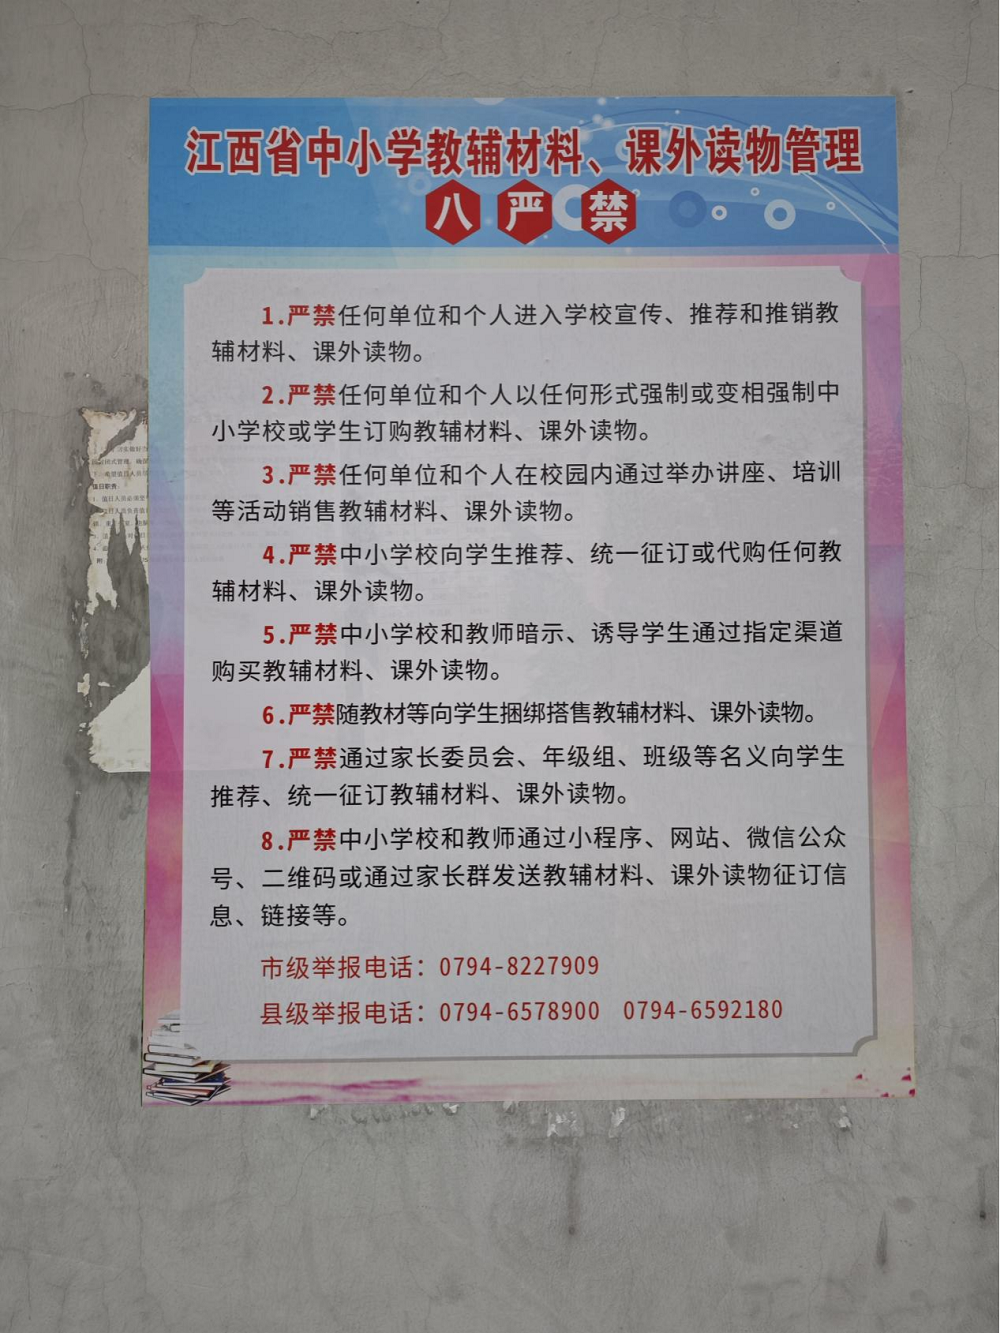 江西省中小学教辅材料、课外读物管理
八严禁
1.严禁任何单位和个人进入学校宣传、推荐和推销教
辅材料、课外读物。
2.严禁任何单位和个人以任何形式强制或变相强制中
小学校或学生订购教辅材料、课外读物。
3.严禁任何单位和个人在校园内通过举办讲座、培训
等活动销售教辅材料、课外读物。
4.严禁中小学校向学生推荐、统一征订或代购任何教
辅材料、课外读物。
5.严禁中小学校和教师暗示、诱导学生通过指定渠道
购买教辅材料、课外读物。
6.严禁随教材等向学生捆绑搭售教辅材料、课外读物。
7.严禁通过家长委员会、年级组、班级等名义向学生
推荐、统一征订教辅材料、课外读物。
8.严禁中小学校和教师通过小程序、网站、微信公众
号、二维码或通过家长群发送教辅材料、课外读物征订信
息、链接等。
市级举报电话：0794-8227909
县级举报电话：0794-6578900 0794-6592180
值日职责：